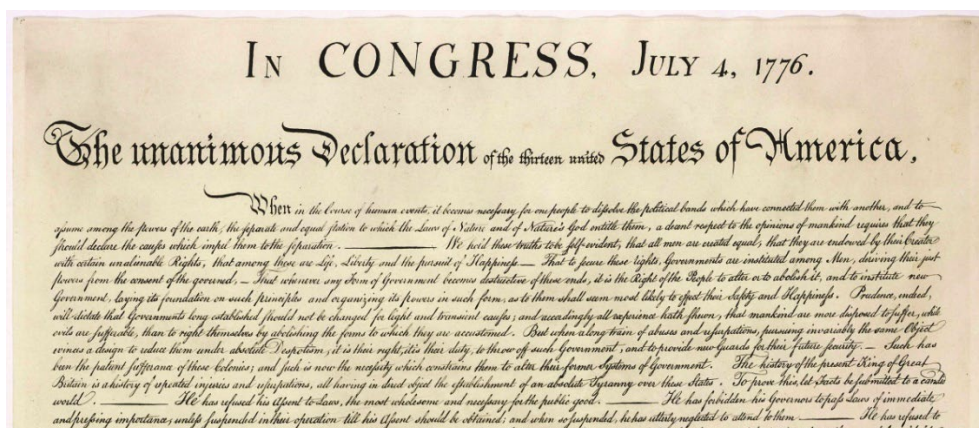 IN CONGRESS, JULY 4, 1776.
The unanimous Declaration of the thirteen united States of America,
When in the Course of human events, it becomes necessary for one people to dissolve the political bands which have connected them with another, and to
assume among the powers of the earth, the separate and equal station to which the Laws of Nature and of Nature's God entitle them, a decent respect to the opinions of mankind requires that they
should declare the causes which impel them to the separation. We hold these truths to be self-evident, that all men are created equal, that they are endowed by their Creator
with certain unalienable Rights, that among these are Life, Liberty and the pursuit of Happiness — That to secure these rights, Governments are instituted among Men, deriving their just
powers from the consent of the governed, — That whenever any Form of Government becomes destructive of these ends, it is the Right of the People to alter or to abolish it, and to institute new
Government, laying its foundation on such principles and organizing its powers in such form, as to them shall seem most likely to effect their Safety and Happiness. Prudence, indeed,
will dictate that Governments long established should not be changed for light and transient causes; and accordingly all experience hath shewn, that mankind are more disposed to suffer, while
evils are sufferable, than to right themselves by abolishing the forms to which they are accustomed. But when a long train of abuses and usurpations, pursuing invariably the same Object
evinces a design to reduce them under absolute Despotism, it is their right, it is their duty, to throw off such Government, and to provide new Guards for their future security. — Such has
been the patient sufferance of these Colonies; and such is now the necessity which constrains them to alter their former Systems of Government. The history of the present King of Great
Britain is a history of repeated injuries and usurpations, all having in direct object the establishment of an absolute Tyranny over these States. To prove this, let Facts be submitted to a candid
world. He has refused his Assent to Laws, the most wholesome and necessary for the public good. He has forbidden his Governors to pass Laws of immediate
and pressing importance, unless suspended in their operation till his Assent should be obtained; and when so suspended, he has utterly neglected to attend to them. He has refused to